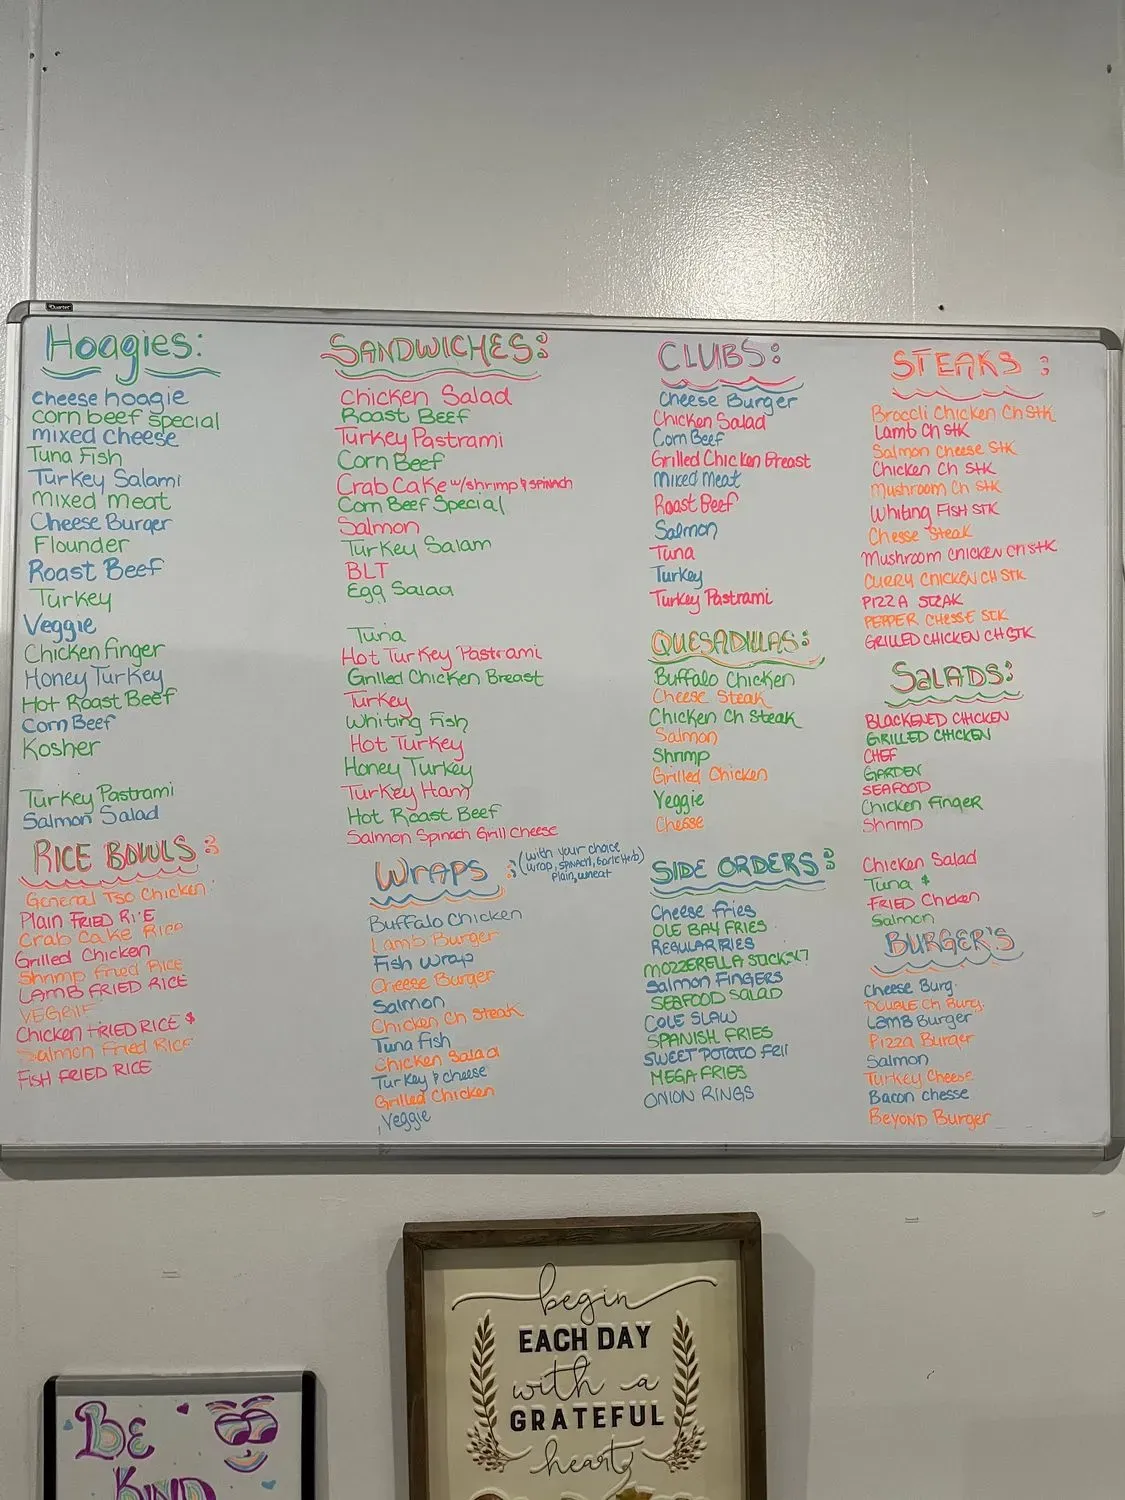 Quartet
Hoagies:
cheese hoagie
corn beef special
mixed cheese
Tuna Fish
Turkey Salami
mixed meat
Cheese Burger
Flounder
Roast Beef
Turkey
Veggie
Chicken finger
Honey Turkey
Hot Roast Beef
Corn Beef
Kosher
Turkey Pastrami
Salmon Salad
RICE BOWLS:
General Tso Chicken
Plain FRIED RICE
Crab Cake Rice
Grilled Chicken
Shrimp Fried RICE
LAMB FRIED RICE
VEGGIE
Chicken FRIED RICE $
Salmon Fried RICE
FISH FRIED RICE
SANDWICHES:
Chicken Salad
Roast Beef
Turkey Pastrami
Corn Beef
Crab Cake w/shrimp & SPINACH
Corn Beef Special
Salmon
Turkey Salam
BLT
Egg Salad
Tuna
Hot Turkey Pastrami
Grilled Chicken Breast
Turkey
Whiting Fish
Hot Turkey
Honey Turkey
Turkey Ham
Hot Roast Beef
Salmon Spinach Grill Cheese
WRAPS: (with your choice
wrap, SPINACH, Garlic Herb)
Plain, wheat
Buffalo Chicken
Lamb Burger
Fish Wrap
Cheese Burger
Salmon
Chicken Ch Steak
Tuna Fish
Chicken Salad
Turkey & cheese
Grilled Chicken
Veggie
CLUBS:
Cheese Burger
Chicken Salad
Corn Beef
Grilled Chicken Breast
Mixed Meat
Roast Beef
Salmon
Tuna
Turkey
Turkey Pastrami
QUESADILLAS:
Buffalo Chicken
Cheese Steak
Chicken Ch Steak
Salmon
Shrimp
Grilled Chicken
Veggie
Cheese
SIDE ORDERS:
Cheese fries
OLE BAY FRIES
REGULAR RIES
MOZZERELLA STICKS
Salmon FINGERS
SEAFOOD SALAD
COLE SLAW
SPANISH FRIES
SWEET POTATO FRII
MEGA FRIES
ONION RINGS
STEAKS:
Broccli Chicken Ch STK
Lamb Ch STK
Salmon Cheese STK
Chicken Ch STK
Mushroom Ch STK
Whiting FISH STK
Chesse Steak
Mushroom CHICKEN CH STK
CURRY CHICKEN CH STK
PIZZA STEAK
PEPPER CHESSE STK
GRILLED CHICKEN CH STK
SALADS:
BLACKENED CHICKEN
GRILLED CHICKEN
CHEF
GARDEN
SEAFOOD
Chicken Finger
Shrimp
Chicken Salad
Tuna $
FRIED Chicken
Salmon
BURGER'S
Cheese Burg.
DOUBLE Ch Burg.
LAMB Burger
Pizza Burger
Salmon
Turkey Cheese
Bacon chesse
BEYOND Burger
begin
EACH DAY
with a
GRATEFUL
heart
BE
KIND